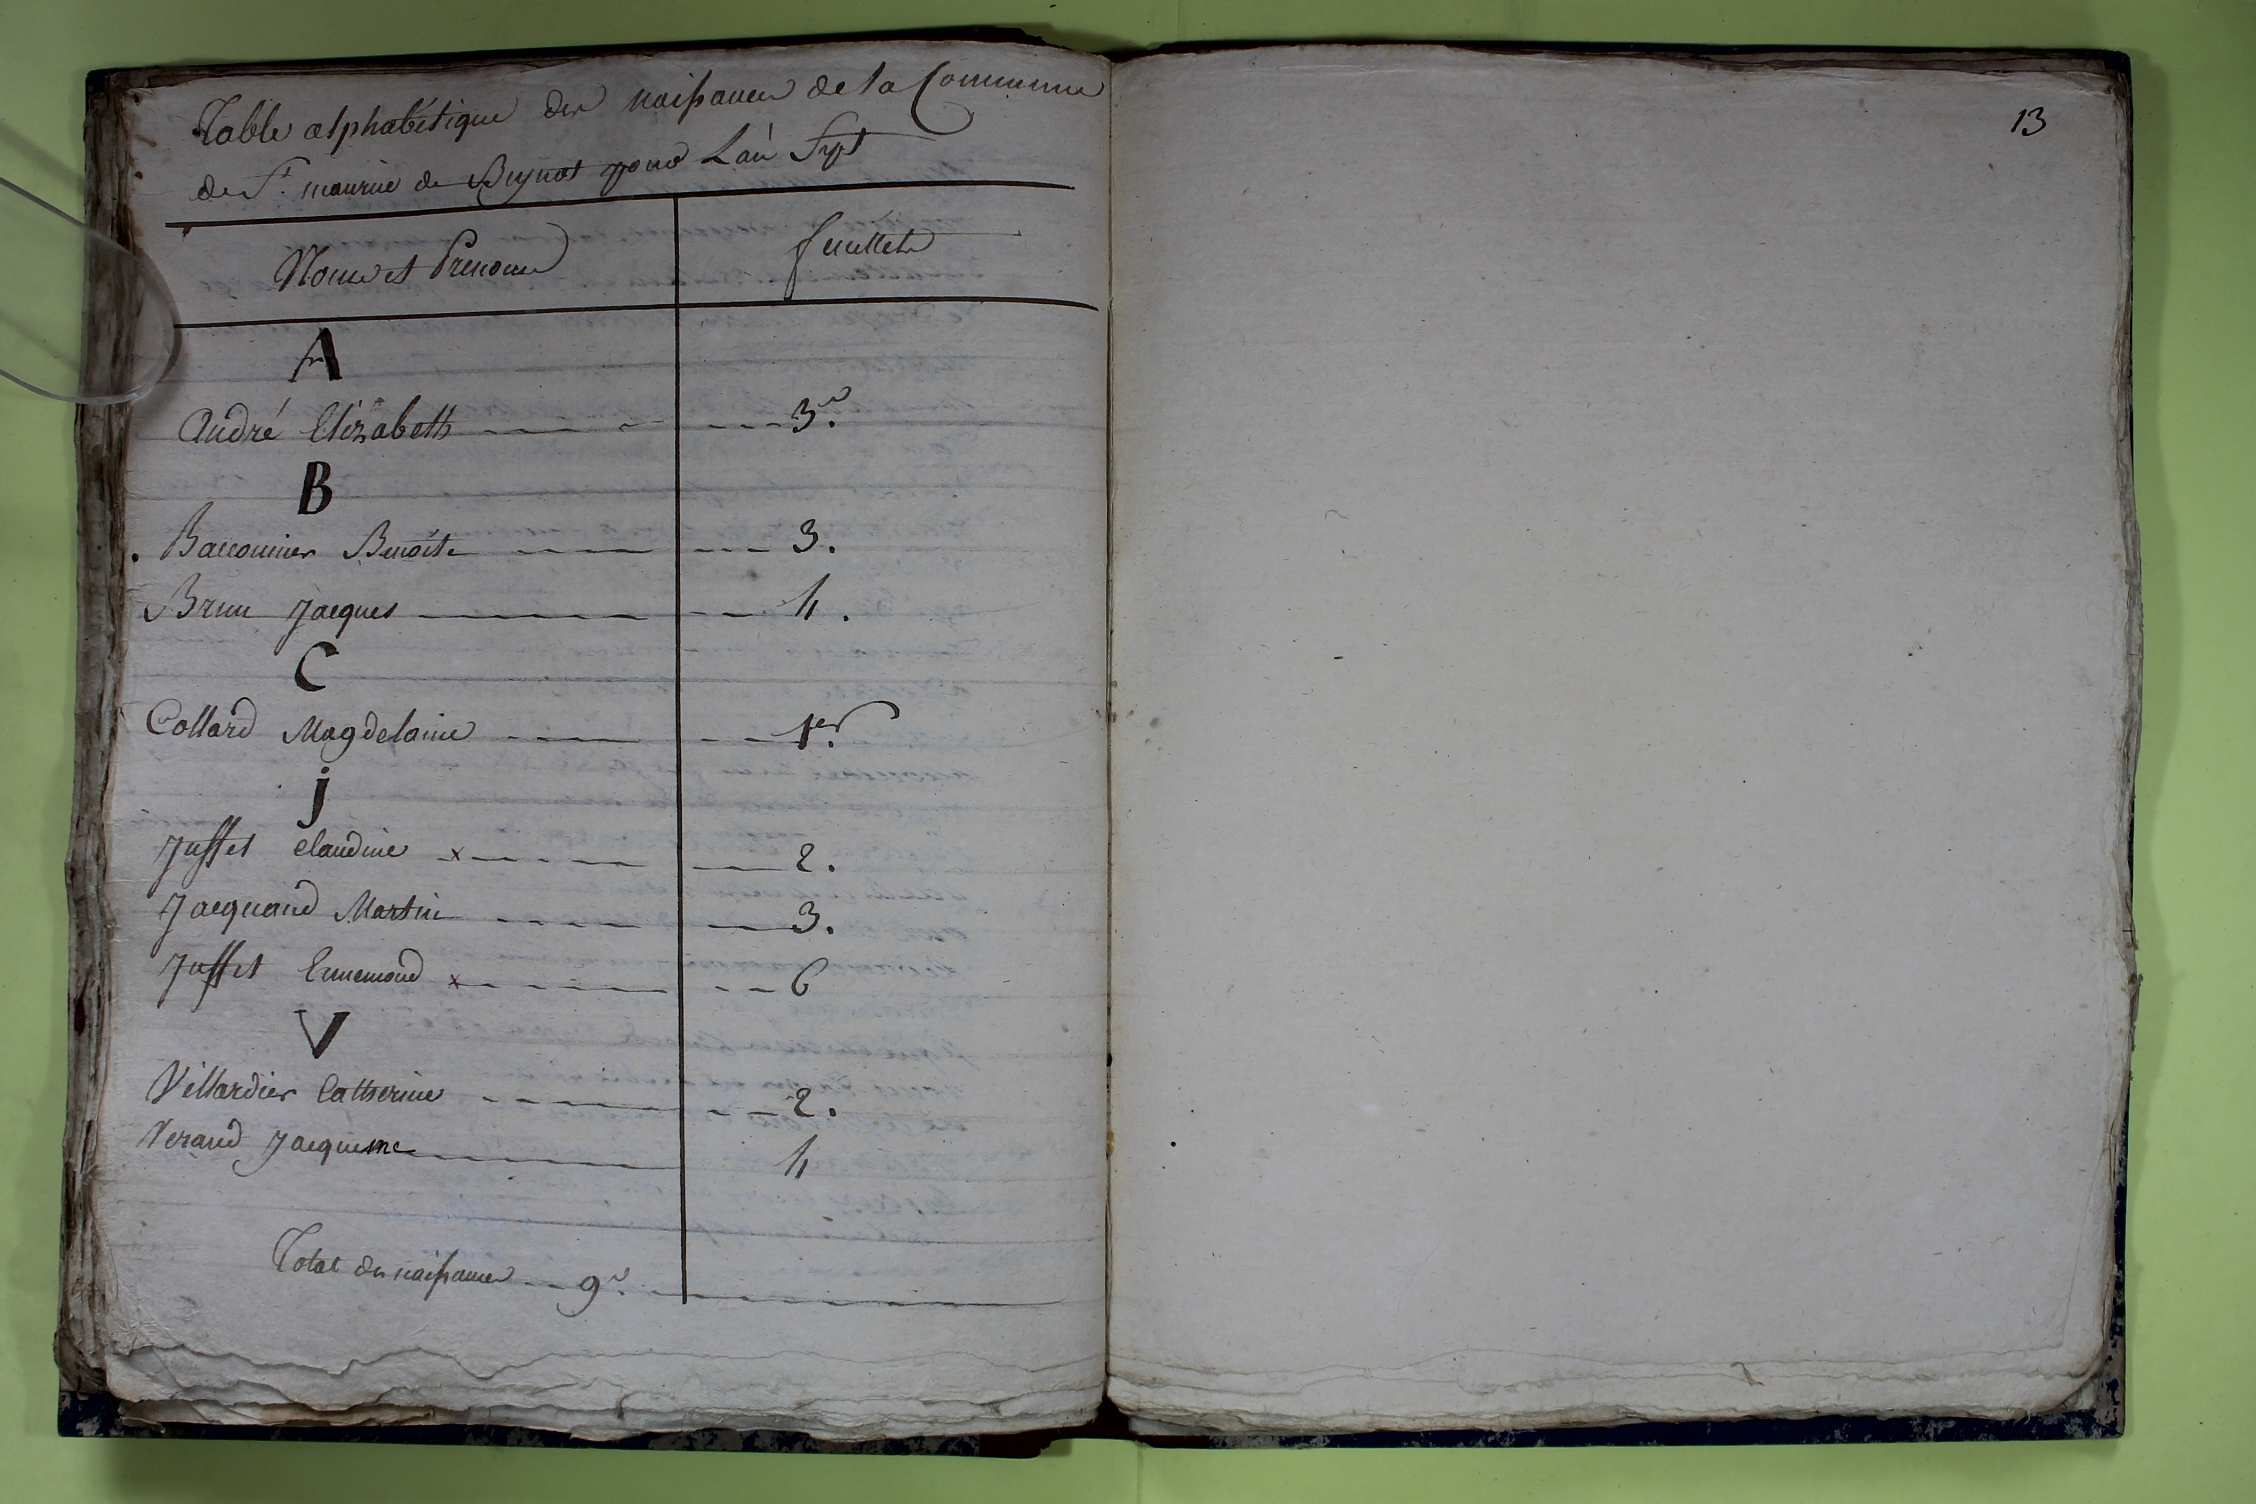 Table alphabétique des naissances de la Commune
de St. maurice de Beynost pour L'an Sept
Noms et Prenoms feuillets
A
André Elizabeth 3e.
B
Bacconnier Benoite 3.
Brun Jacques 4.
C
Collard Magdelaine 1er.
j
Juffet claudine x 2.
Jacquand Martin 3.
Juffet Ennemond x 6
V
Villardier Catherine 2.
Verand Jacqueme 4
Total des naissances 9.
13